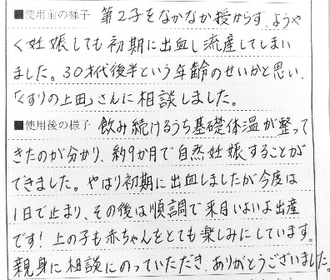 ■使用前の様子 第2子をなかなか授からず、ようや
く妊娠しても初期に出血し流産してしまい
ました。30才代後半という年齢のせいかと思い、
「くすりの上田」さんに相談しました。
■使用後の様子 飲み続けるうち基礎体温が整って
きたのが分かり、約9か月で自然妊娠することが
できました。やはり初期に出血しましたが今度は
1日で止まり、その後は順調で来月いよいよ出産
です! 上の子も赤ちゃんをとても楽しみにしています。
親身に相談にのっていただき ありがとうございました